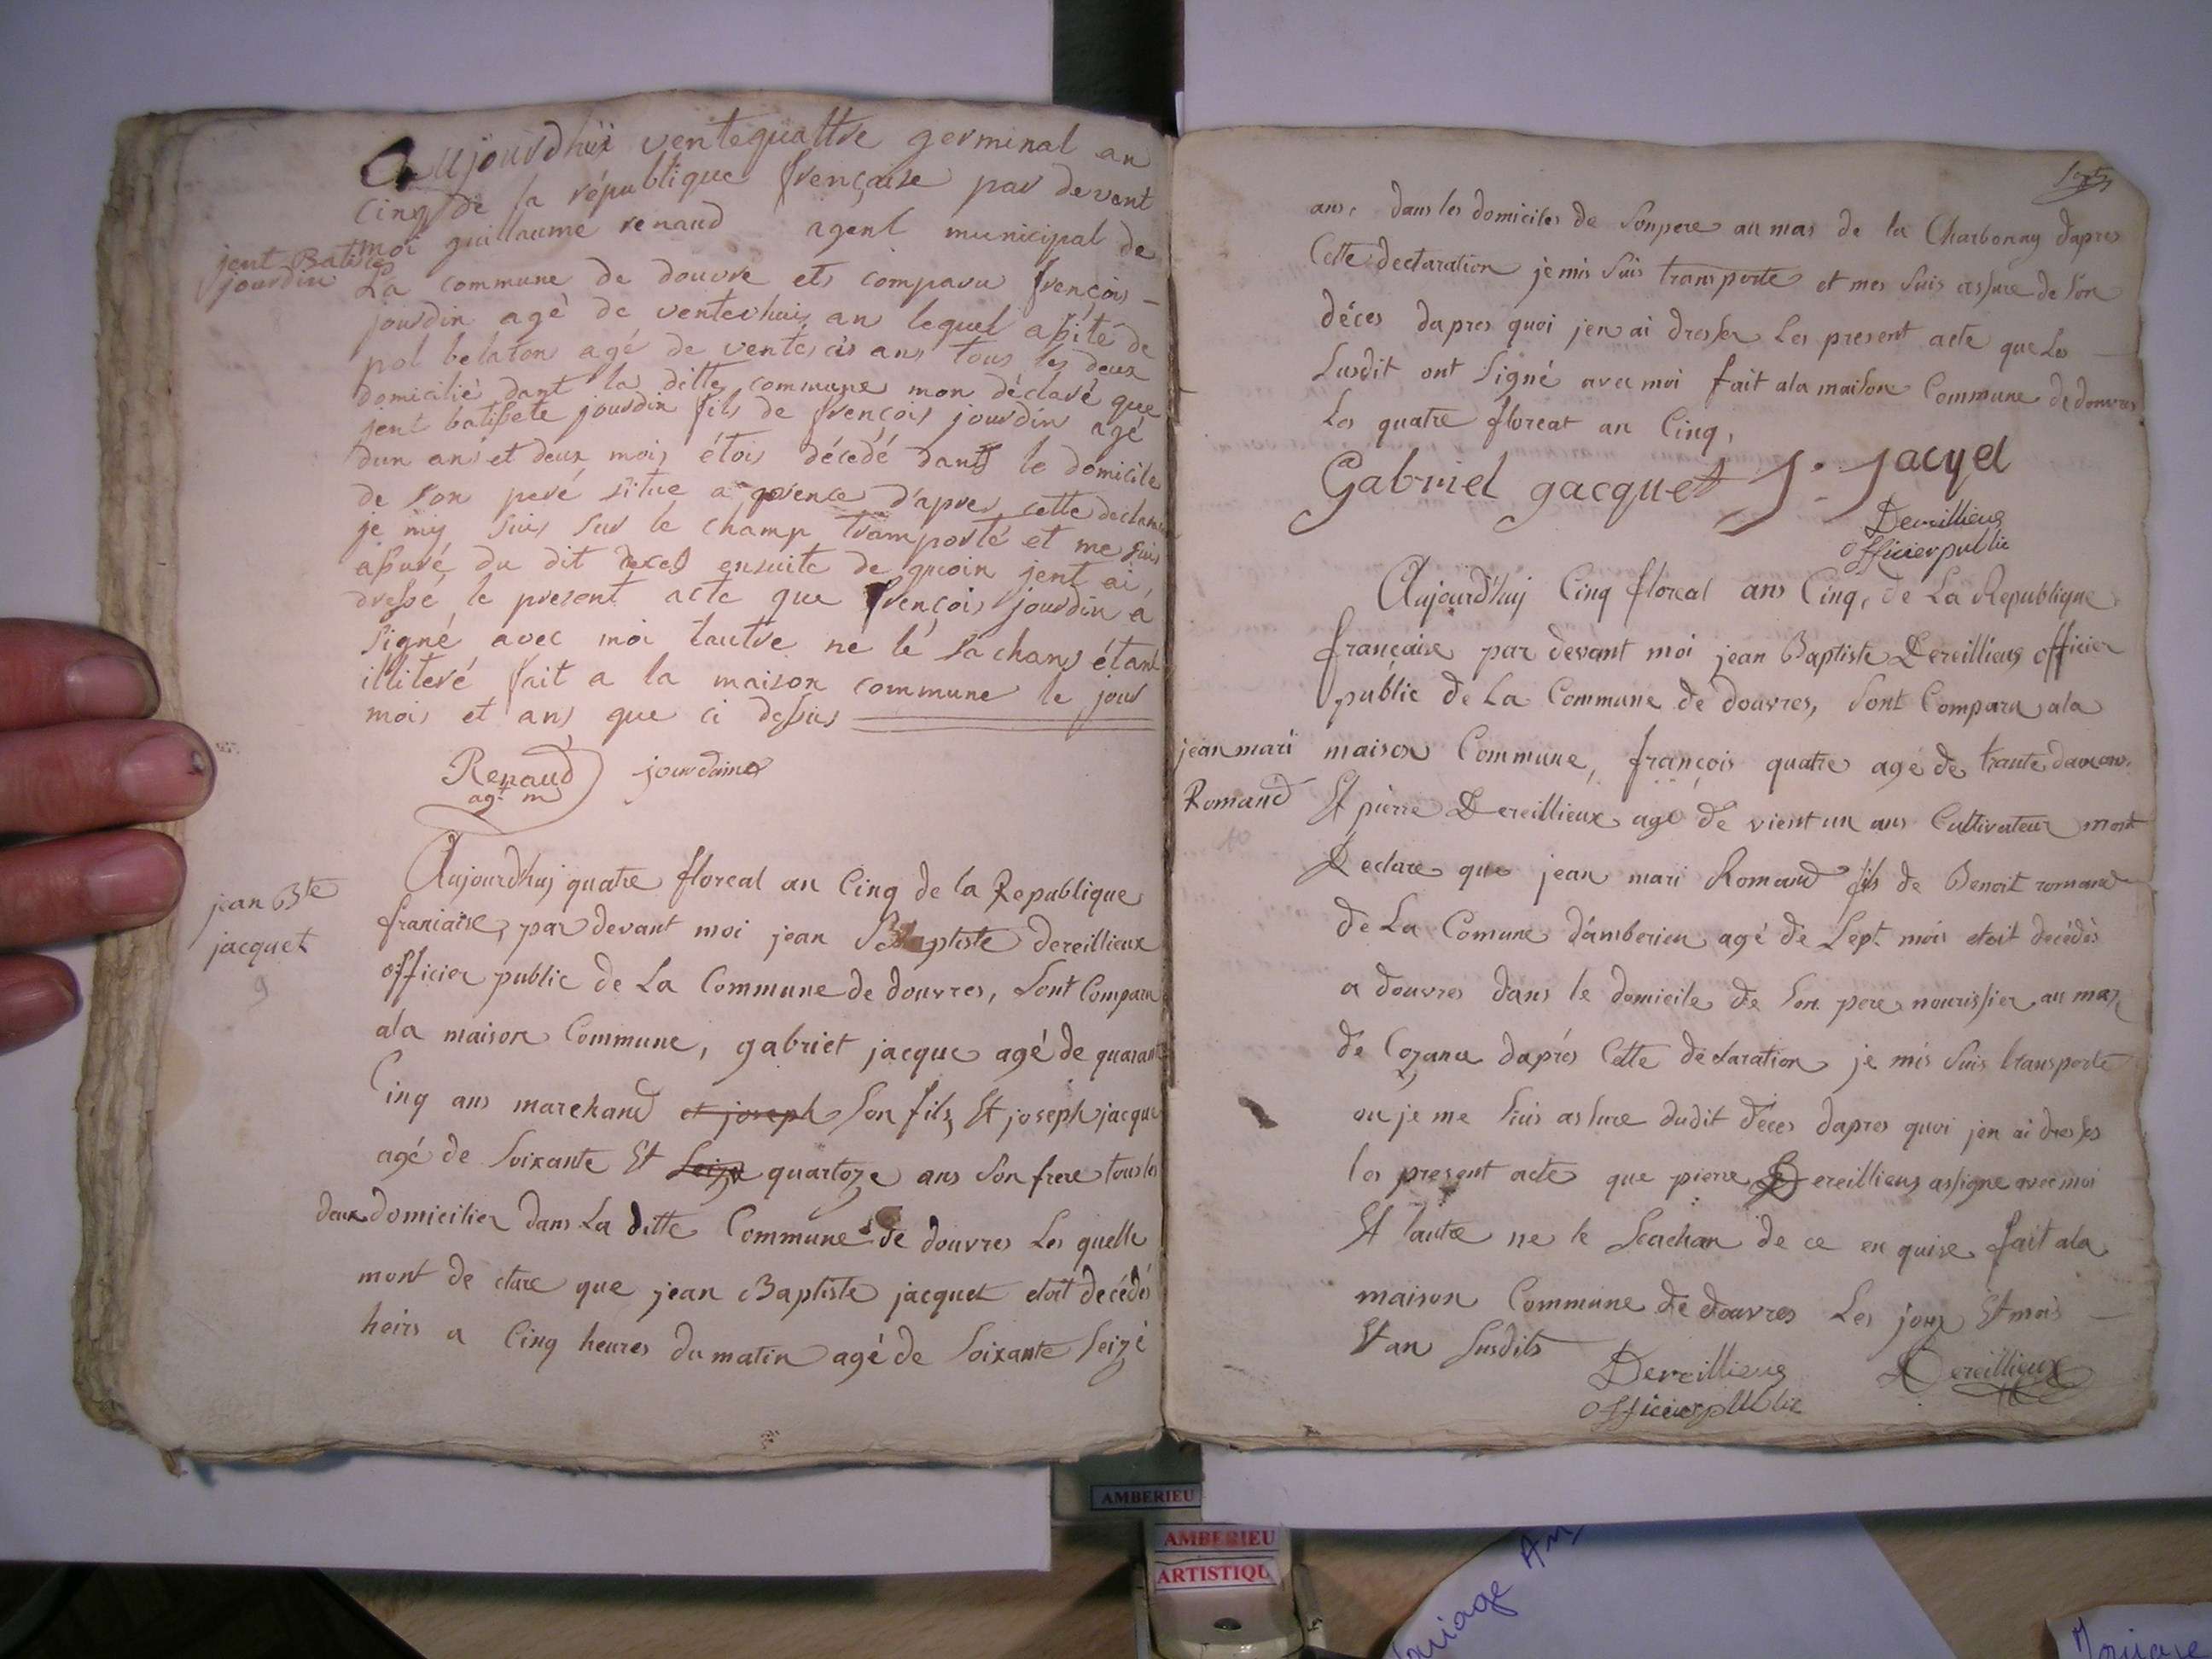 Aujourdhüi ventequattre germinal an
cinq de la république frençaise par devent
moi guillaume renaud agent municipal de
jent Batiste
jourdin
La commune de douvre ets comparu françois
jourdin agé de ventethuis an lequel asité de
pol belaton agé de ventesis ans tous les deux
domicilié dant la ditte commune mon déclaré que
jent batisete jourdin fils de françois jourdin agé
dun ans et deux mois étois décédé dants le domicile
de son peré situe a cosence d'apres cette declara
je my suis sur le champ tramporté et me suis
assuré du dit deces ensuite de quoin jent ai
dresse le present acte que françois jourdin a
signé avec moi lautre ne lé sachans étant
illiteré fait a la maison commune le jour
mois et ans que ci dessus
Renaud jourdain
agt m
jean Bte
jacquet
9
Aujourdhuj quatre floreal an Cinq de la Republique
franiaise, par devant moi jean Baptiste dereillieux
officier public de La Commune de douvres, sont Comparu
ala maison Commune, gabriet jacque agé de quarant
Cinq ans marchand et joseph son fils Et joseph jacque
agé de Soixante Et Seize quartoze ans son frere tous les
deux domicilier dans La ditte Commune de douvres Les quelle
mont de clare que jean Baptiste jacquet etoit decédés
heirs a Cinq heures du matin agé de Soixante Seizé
Sept
ans, dans les domiciles de son pere au mas de la Charbonny dapres
Cette declaration je mis suis transporte et mes suis assure de son
déces dapres quoi jen ai dresser Les present acte que Les
Susdit ont signé avec moi fait ala maison Commune de douvres
Les quatre floreat an Cinq,
Gabriel gacquet J. Jacqel
Dereillieux
officier public
Aujourd'huij Cinq floreal ans Cinq, de La Republique
française par devant moi jean Baptiste Dereillieux officier
public de La Commune de douvres, sont Comparu ala
jean mari
Romand
maison Commune, françois quatre agé de trante deux ans.
Et pierre Dereillieux agé de vient un ans Cultivateur mont
Declare que jean mari Romand fils de Benoit romand
de La Comune d'amberieu agé de Sept mois etoit decédés
a douvres dans le domicile de son pere nourissier au mas
de Cozance daprés Cette déclaration je mis suis transporte
ou je me suis assure dudit déces dapres quoi jen ai dresses
les present acte que pierre Dereillieux assigne avec moi
Et lautre ne le Scachan de ce en quise fait ala
maison Commune de douvres Les jour Et mois
Et an Susdits
Dereillieux Dereillieux
officier public
AMBERIEU
AMBERIEU
ARTISTIQU